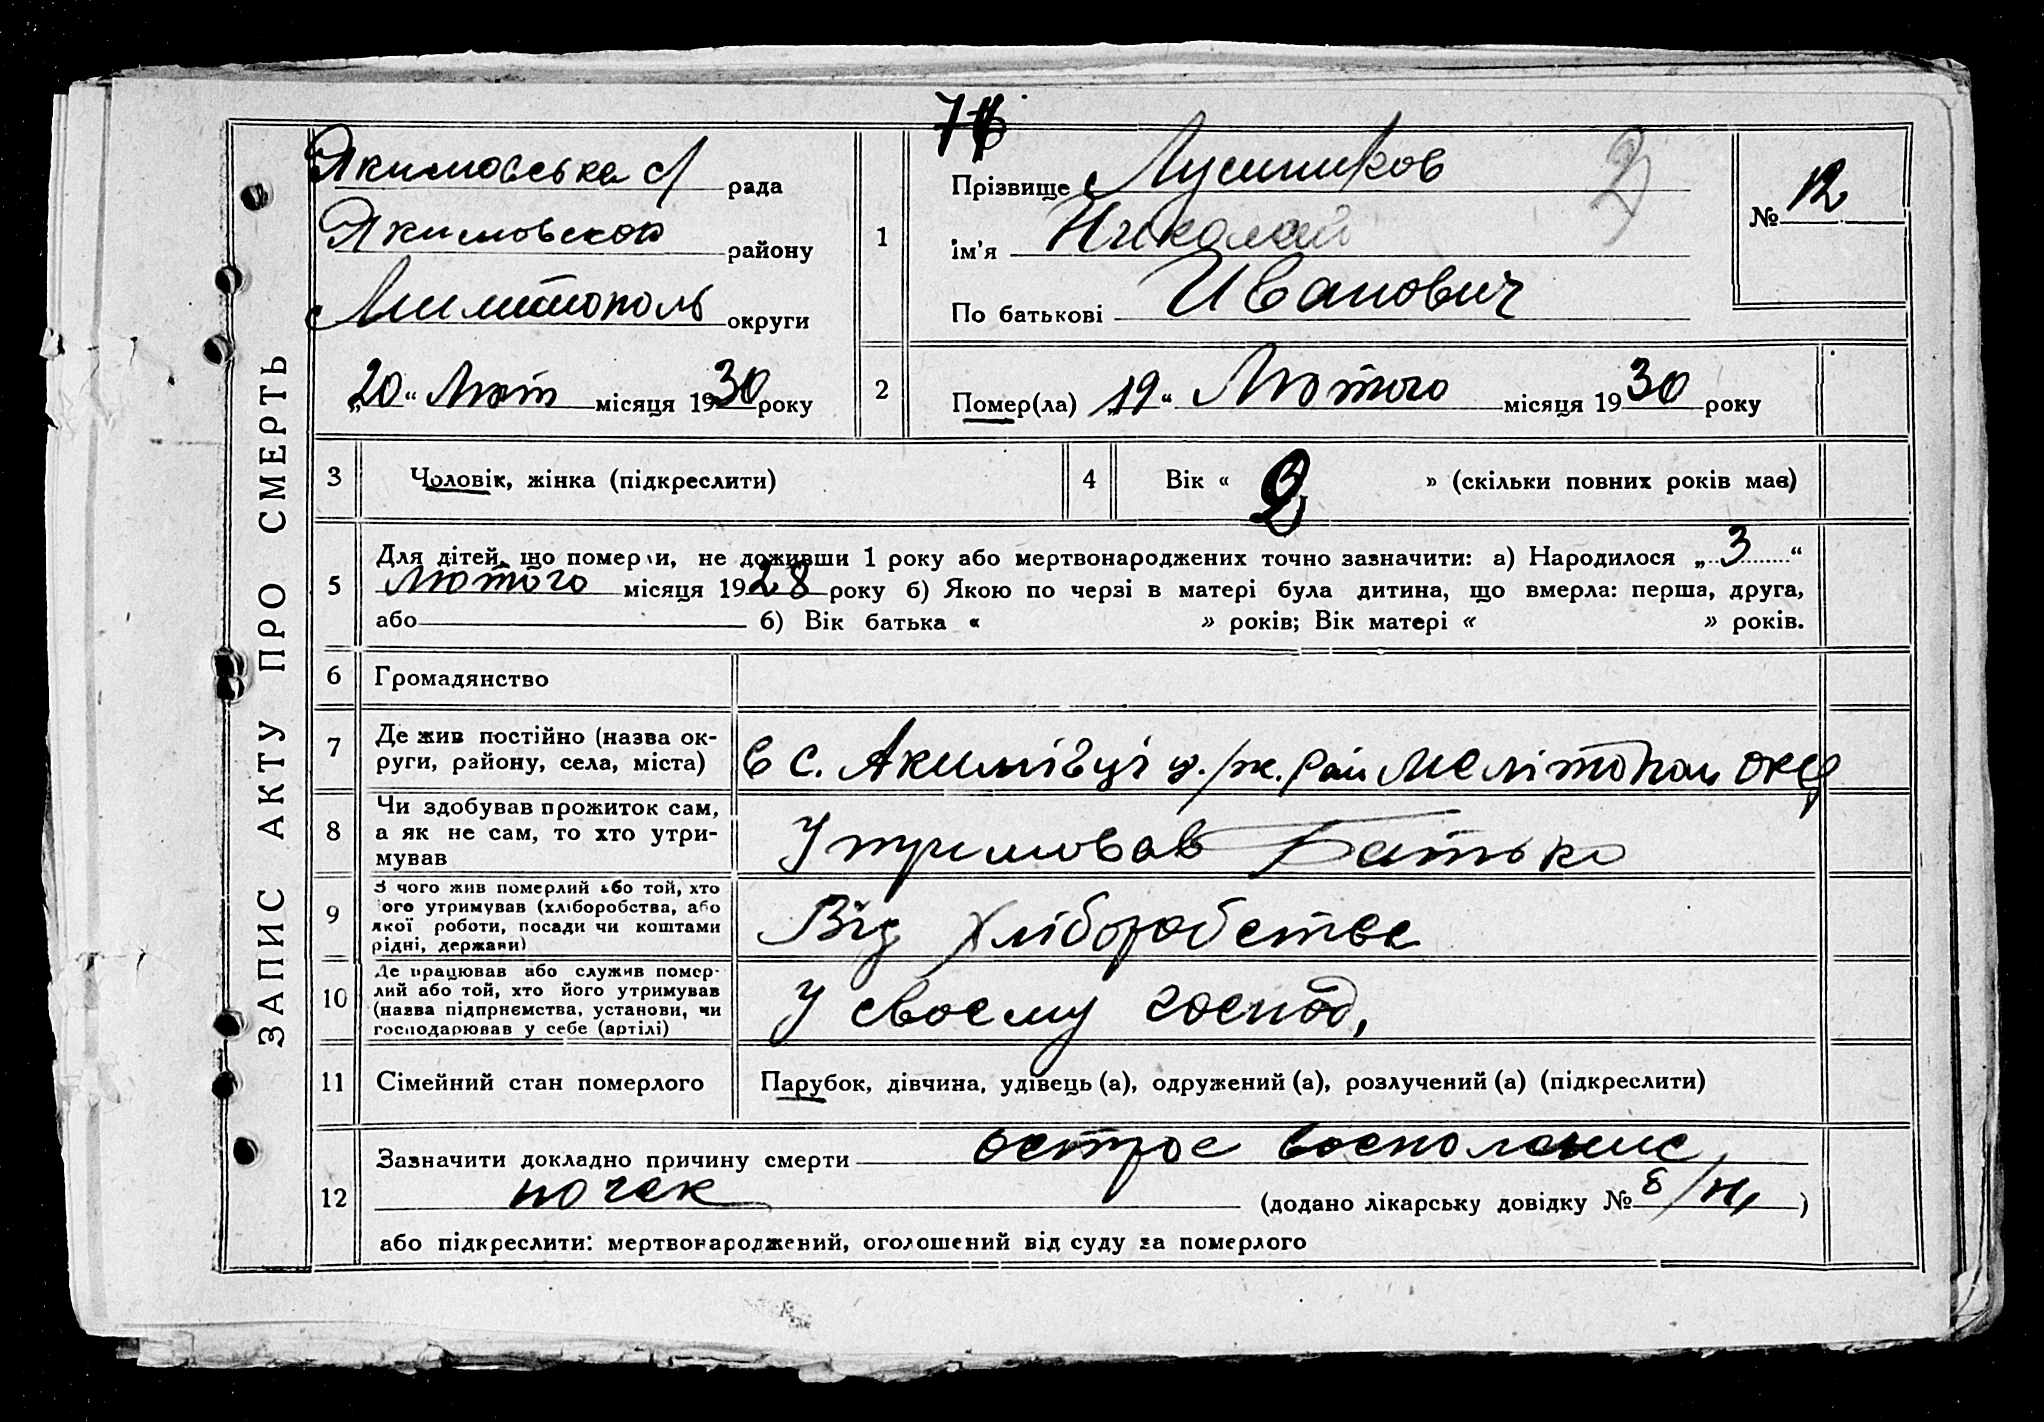 ЗАПИС АКТУ ПРО СМЕРТЬ
Якимовська с/ рада
Якимовского району
Милитополь округи
„20“ Лют місяця 1930 року
1
Прізвище
ім'я Николай
По батькові Иванович
№ 12
2
Помер(ла) „19“ Лютого місяця 1930 року
3
Чоловік, жінка (підкреслити)
4
Вік « 2 » (скільки повних років має)
5
Для дітей, що померли, не доживши 1 року або мертвонароджених точно зазначити: а) Народилося „3“
лютого місяця 1928 року б) Якою по черзі в матері була дитина, що вмерла: перша, друга,
або б) Вік батька « » років; Вік матері « » років.
6
Громадянство
7
Де жив постійно (назва ок-
руги, району, села, міста)
в с. Акимівці рай Мелітопол окр
8
Чи здобував прожиток сам,
а як не сам, то хто утри-
мував
Утримовав Батько
9
З чого жив померлий або той, хто
його утримував (хліборобства, або
якої роботи, посади чи коштами
рідні, держави)
Від Хліборобства
10
Де працював або служив помер-
лий або той, хто його утримував
(назва підприємства, установи, чи
господарював у себе (артілі)
У своєму господ,
11
Сімейний стан померлого
Парубок, дівчина, удівець (а), одружений (а), розлучений (а) (підкреслити)
12
Зазначити докладно причину смерти острое восполение
почек (додано лікарську довідку № )
або підкреслити: мертвонароджений, оголошений від суду за померлого